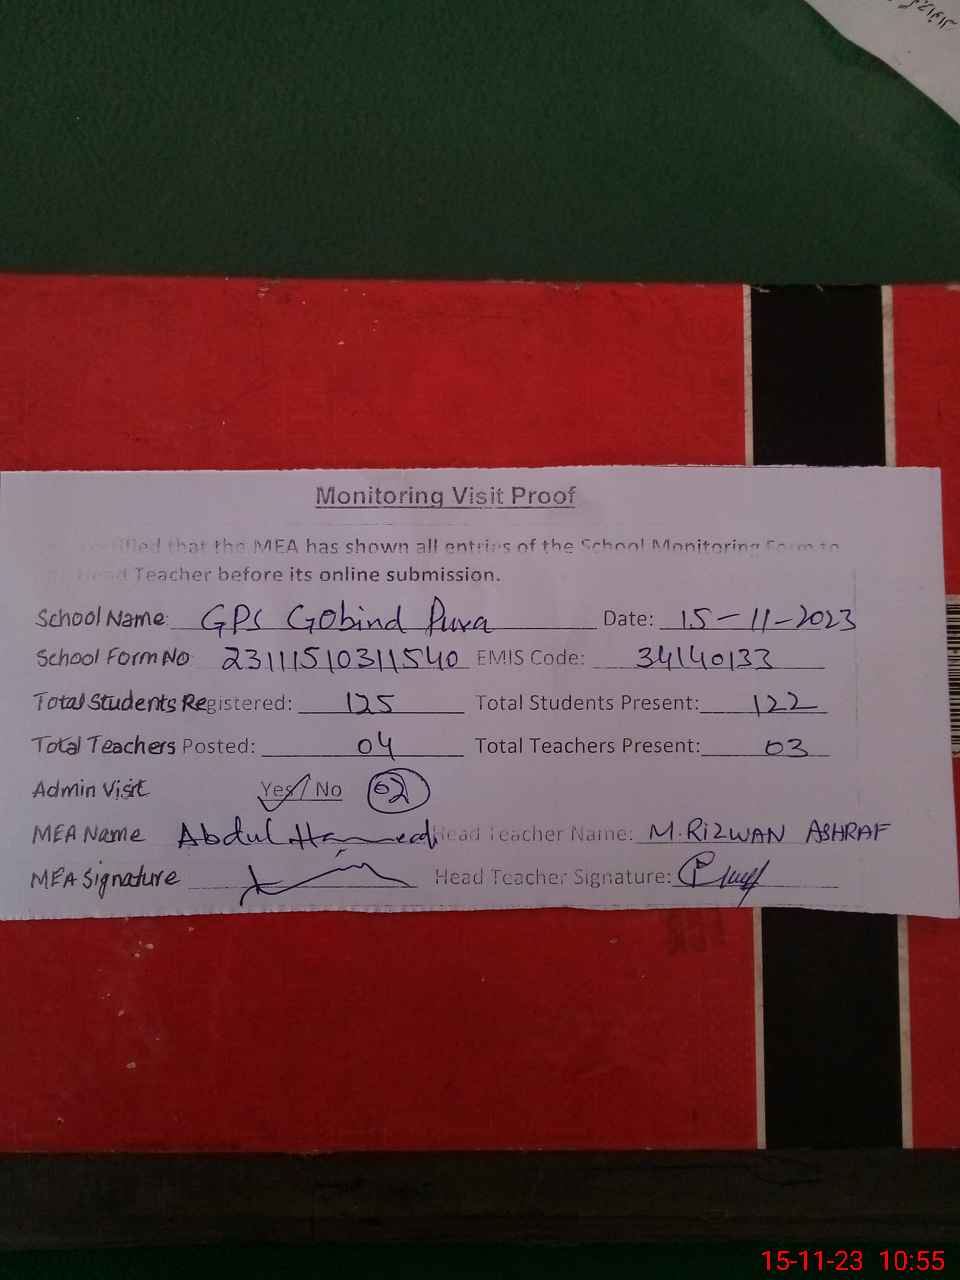 Monitoring Visit Proof
certified that the MEA has shown all entries of the School Monitoring Form to
Head Teacher before its online submission.
School Name: GPS Gobind Pura Date: 15-11-2023
School Form No 23111510311540 EMIS Code: 34140133
Total Students Registered: 125 Total Students Present: 122
Total Teachers Posted: 04 Total Teachers Present: 03
Admin Visit Yes / No 02
MEA Name Abdul Hameed Head Teacher Name: M. RIZWAN ASHRAF
MEA Signature Head Teacher Signature:
15-11-23 10:55